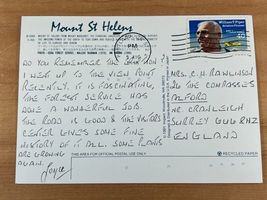 Mount St Helens
PM
William T. Piper
DO YOU REMEMBER THE
I WENT UP TO THE VIEW POINT
RECENTLY. IT IS FASCINATING,
THE FOREST SERVICE HAS
DONE A WONDERFUL JOB.
THE ROAD IS GOOD & THE VISITORS
CENTER GIVES SOME FINE
HISTORY OF IT ALL. SOME PLANTS
ARE GROWING
AGAIN.
Joyce
MRS. C. H. RAWLINSON
26 THE COMPASSES
ALFORD
NR. CRANLEIGH
SURREY GU6
ENGLAND
THIS AREA FOR OFFICIAL POSTAL USE ONLY.
RECYCLED PAPER